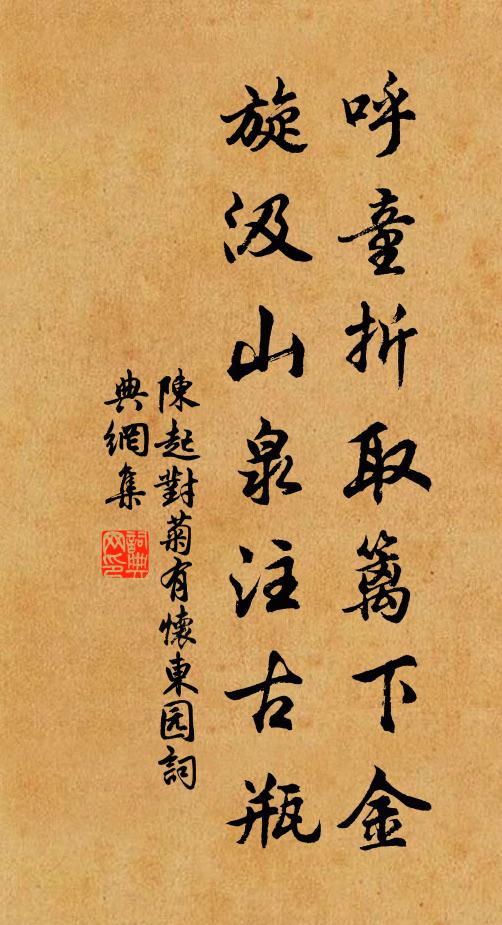 呼童折取篱下金
旋汲山泉注古瓶
陳起對菊有懷東园詞
典網集
詞典网印